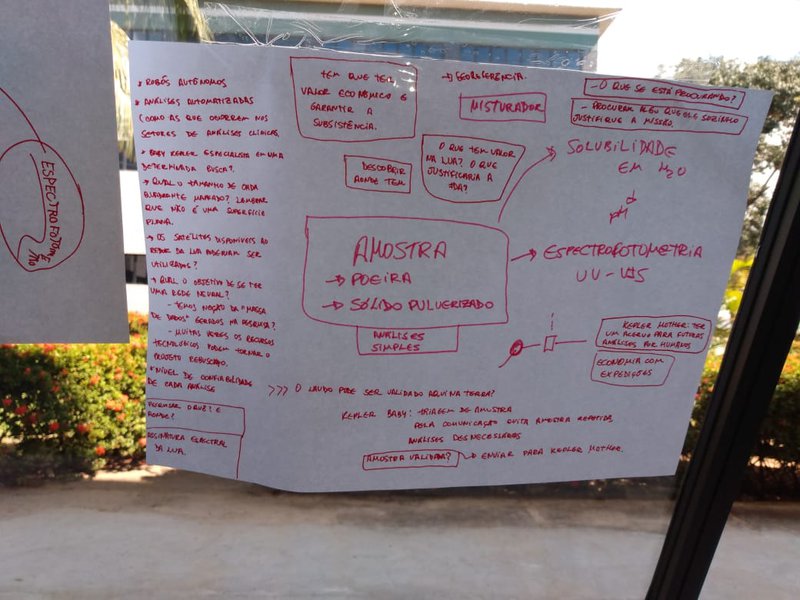 ESPECTROFOTÔME
TRO
* ROBÔS AUTÔNOMOS
* ANÁLISES AUTOMATIZADAS
(COMO AS QUE OCORREM NOS
SETORES DE ANÁLISES CLÍNICAS)
* BABY KEPLER ESPECIALISTA EM UMA
DETERMINADA BUSCA?
→ QUAL O TAMANHO DE CADA
QUADRANTE MAPEADO? LEMBRAR
QUE NÃO É UMA SUPERFÍCIE
PLANA.
→ OS SATÉLITES DISPONÍVEIS AO
REDOR DA LUA PODERIAM SER
UTILIZADOS?
→ QUAL O OBJETIVO DE SE TER
UMA REDE NEURAL?
- TEMOS NOÇÃO DA "MASSA
DE DADOS" GERADOS NA PESQUISA?
- MUITAS VEZES OS RECURSOS
TECNOLÓGICOS PODEM TORNAR O
PROJETO REBUSCADO.
* NÍVEL DE CONFIABILIDADE
DE CADA ANÁLISE
PESQUISAR O QUE? E
AONDE?
ASSINATURA ESPECTRAL
DA LUA.
TEM QUE TER
VALOR ECONÔMICO E
GARANTIR A
SUBSISTÊNCIA.
→ GEOREFERÊNCIA.
MISTURADOR
- O QUE SE ESTÁ PROCURANDO?
- PROCURAR ALGO QUE SOZINHO
JUSTIFIQUE A MISSÃO.
DESCOBRIR
AONDE TEM
O QUE TEM VALOR
NA LUA? O QUE
JUSTIFICARIA A
IDA?
SOLUBILIDADE
EM H2O
pH
AMOSTRA
→ POEIRA
→ SÓLIDO PULVERIZADO
ANÁLISES
SIMPLES
→ ESPECTROFOTOMETRIA
UV-VIS
KEPLER MOTHER: TER
UM ACERVO PARA FUTURAS
ANÁLISES POR HUMANOS
ECONOMIA COM
EXPEDIÇÕES
>>> O LAUDO PODE SER VALIDADO AQUI NA TERRA?
KEPLER BABY: TRIAGEM DE AMOSTRA
PELA COMUNICAÇÃO EVITA AMOSTRA REPETIDA,
ANÁLISES DESNECESSÁRIAS
AMOSTRA VALIDADA? → ENVIAR PARA KEPLER MOTHER.